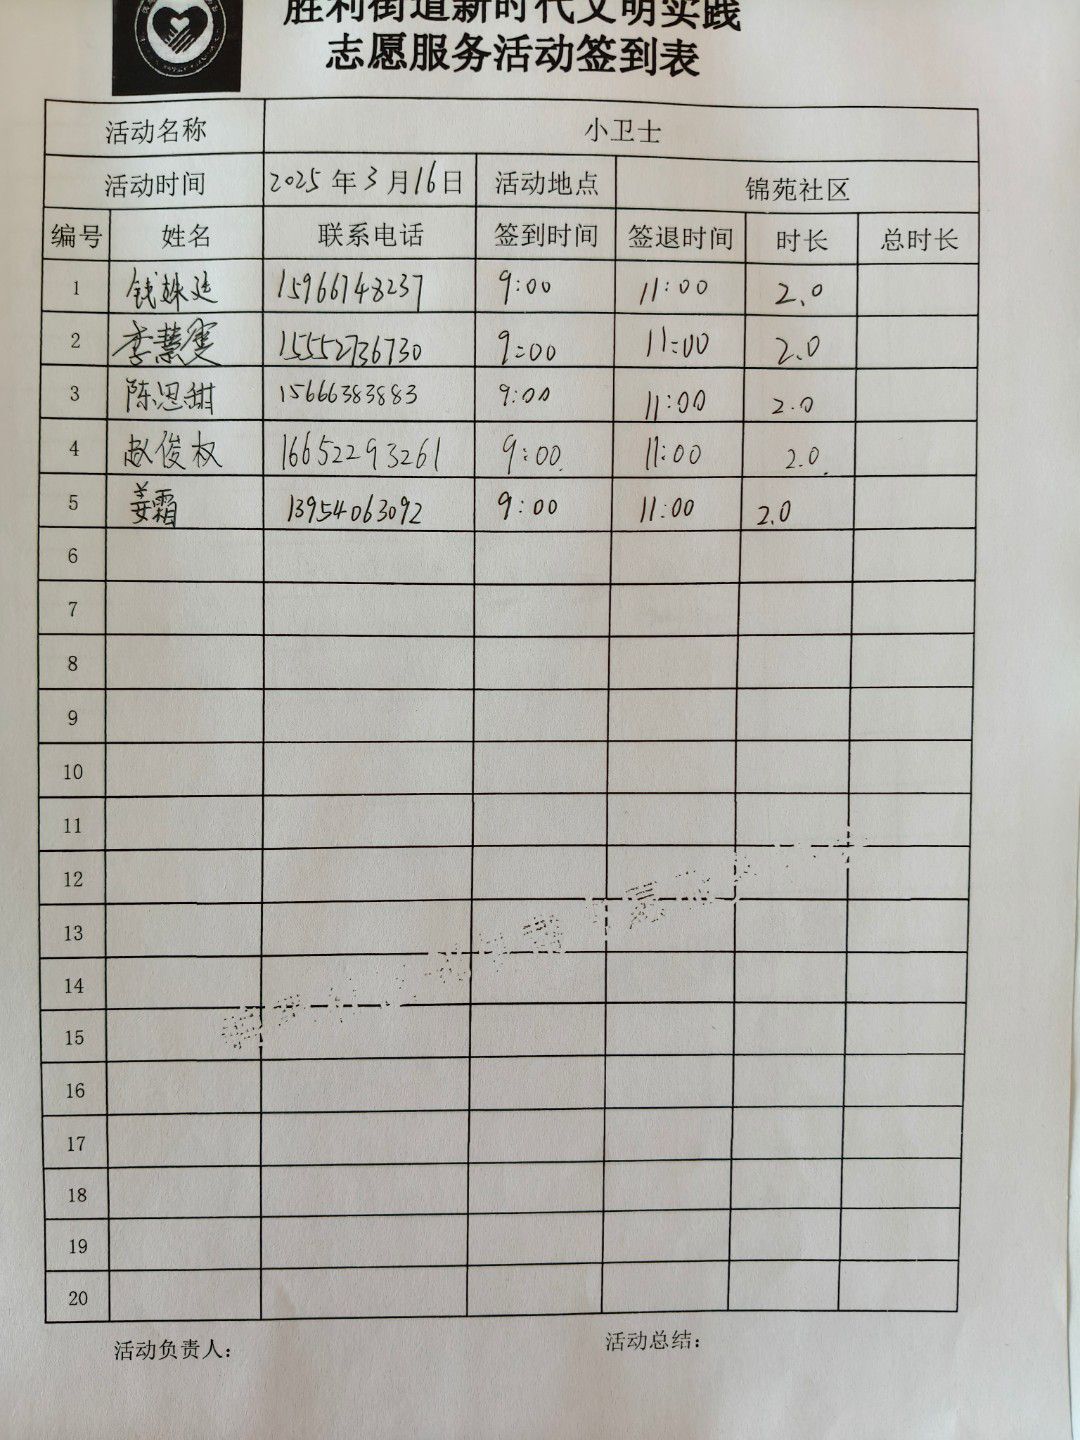 胜利街道新时代文明实践
志愿服务活动签到表
活动名称 小卫士
活动时间 2025年3月16日 活动地点 锦苑社区
编号 姓名 联系电话 签到时间 签退时间 时长 总时长
1 钱姝廷 15966748237 9:00 11:00 2.0
2 李慧雯 15552736730 9:00 11:00 2.0
3 陈思甜 15666383883 9:00 11:00 2.0
4 赵俊权 16652293261 9:00 11:00 2.0
5 姜霜 13954063092 9:00 11:00 2.0
6
7
8
9
10
11
12
13
14
15
16
17
18
19
20
活动负责人： 活动总结：